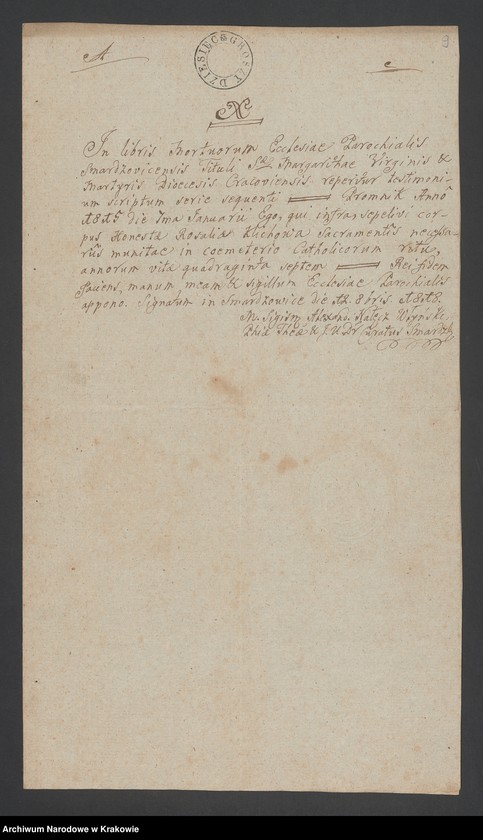 9
DZIESIĘĆ GROSZY
In libris Mortuorum Ecclesiae Parochialis
Smardzovicensis Tituli Stae Margarithae Virginis &
Martyris Diocecesis Cracoviensis reperitur testimoni-
um scriptum serie sequenti Promnik Anno
die Ima Januarii Ego, qui infra, sepelivi cor-
pus Honesta Rosalia Klichovia Sacramentis necessa-
riis munitae in coemeterio Catholicorum ritu,
annorum vita quadraginta septem Rei fidem
faciens, manum meam & sigillum Ecclesiae Parochialis
appono. Signatum in Smardzowice die 8bris
M. Sigism Alexand
Phiae & J. U. Dr
Archiwum Narodowe w Krakowie